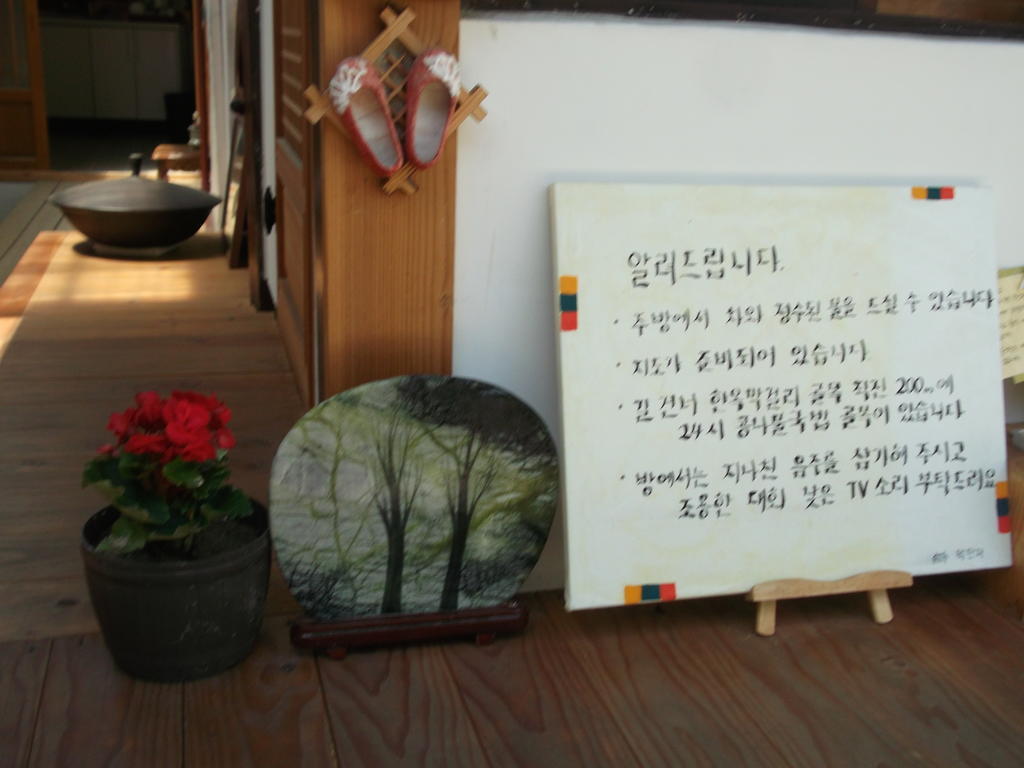 알려드립니다.
· 주방에서 차와 정수된 물을 드실 수 있습니다
· 지도가 준비되어 있습니다
· 길 건너 한옥막걸리 골목 직진 200m에
24시 콩나물국밥 골목이 있습니다
· 방에서는 지나친 음주를 삼가해 주시고
조용한 대화 낮은 TV 소리 부탁드려요